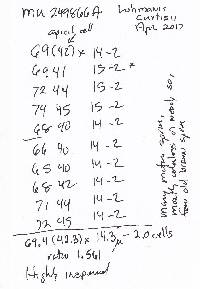 MU 249866A
Luhmann &
Curtis!!
Apr 2017
apical cell
69 (42) x 14-2
69 41 15-2 *
72 44 15-2
74 45 15-2
68 40 14-2
66 40 14-2
65 40 14-2
68 42 14-2
71 44 14-2
72 45 14-2
many mature spores,
mostly colorless or nearly so,
few old brown spores
69.4 (42.3) x 14.3µ - 2.0 cells
ratio 1.561
Highly